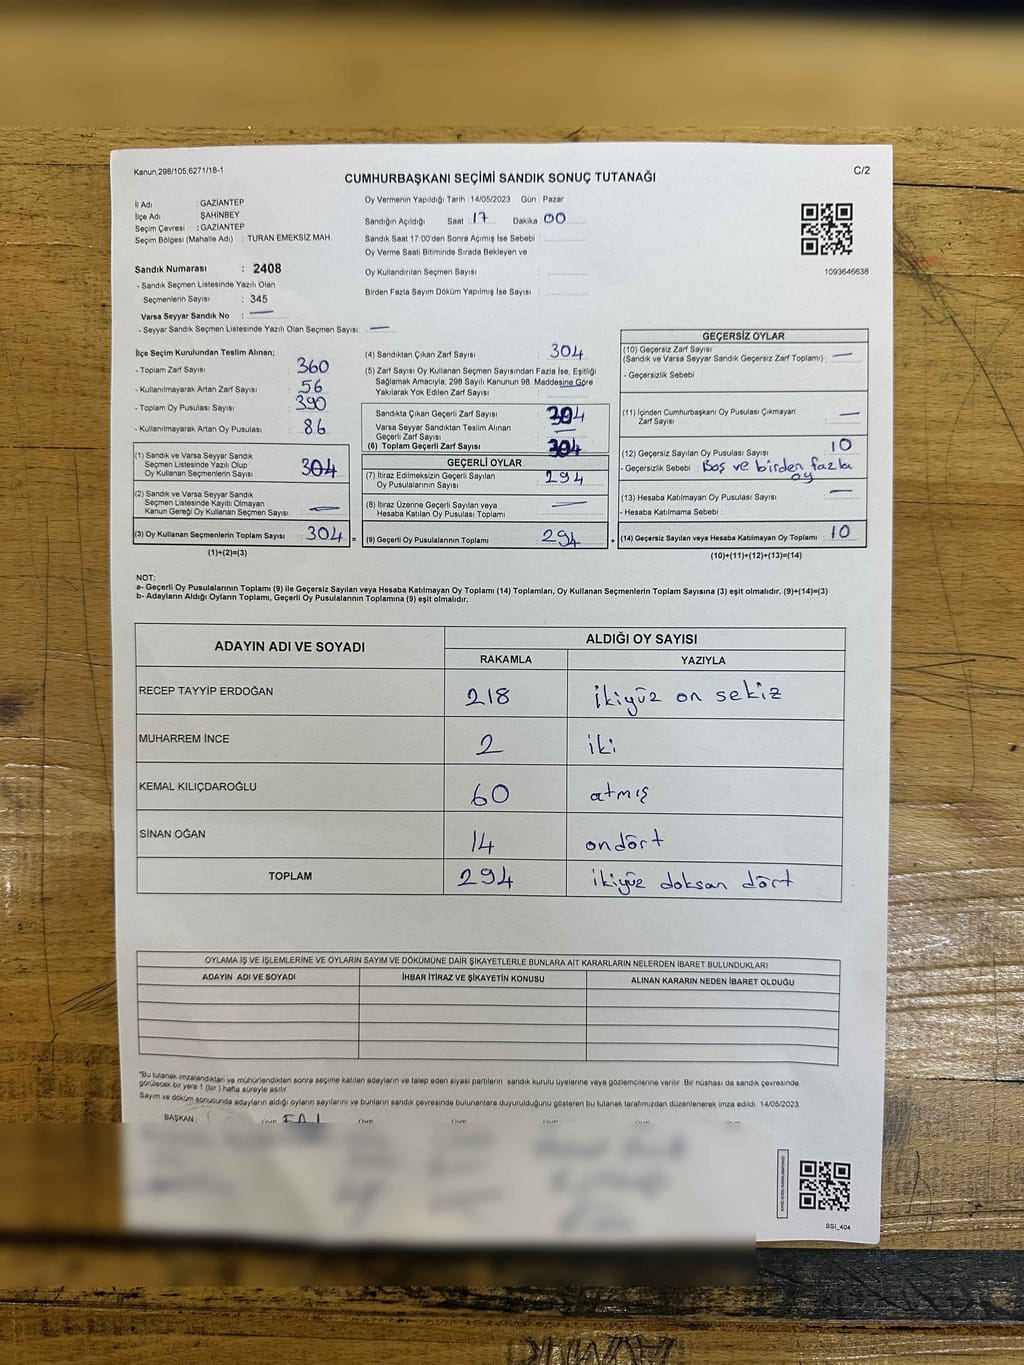 Kanun,298/105,6271/18-1
C/2
CUMHURBAŞKANI SEÇİMİ SANDIK SONUÇ TUTANAĞI
İl Adı : GAZİANTEP
İlçe Adı : ŞAHİNBEY
Seçim Çevresi : GAZİANTEP
Seçim Bölgesi (Mahalle Adı) : TURAN EMEKSİZ MAH.
Sandık Numarası : 2408
- Sandık Seçmen Listesinde Yazılı Olan
Seçmenlerin Sayısı : 345
Varsa Seyyar Sandık No : —
- Seyyar Sandık Seçmen Listesinde Yazılı Olan Seçmen Sayısı: —
Oy Vermenin Yapıldığı Tarih :14/05/2023 Gün : Pazar
Sandığın Açıldığı Saat 17 Dakika 00
Sandık Saat 17:00'den Sonra Açımış İse Sebebi :
Oy Verme Saati Bitiminde Sırada Bekleyen ve
Oy Kullandırılan Seçmen Sayısı :
Birden Fazla Sayım Döküm Yapılmış İse Sayısı :
1093646638
İlçe Seçim Kurulundan Teslim Alınan;
- Toplam Zarf Sayısı : 360
- Kullanılmayarak Artan Zarf Sayısı : 56
- Toplam Oy Pusulası Sayısı : 390
- Kullanılmayarak Artan Oy Pusulası : 86
(1) Sandık ve Varsa Seyyar Sandık
Seçmen Listesinde Yazılı Olup
Oy Kullanan Seçmenlerin Sayısı : 304
(2) Sandık ve Varsa Seyyar Sandık
Seçmen Listesinde Kayıtlı Olmayan
Kanun Gereği Oy Kullanan Seçmen Sayısı : —
(3) Oy Kullanan Seçmenlerin Toplam Sayısı : 304 =
(1)+(2)=(3)
(4) Sandıktan Çıkan Zarf Sayısı : 304
(5) Zarf Sayısı Oy Kullanan Seçmen Sayısından Fazla İse, Eşitliği
Sağlamak Amacıyla; 298 Sayılı Kanunun 98. Maddesine Göre
Yakılarak Yok Edilen Zarf Sayısı : —
Sandıkta Çıkan Geçerli Zarf Sayısı : 304
Varsa Seyyar Sandıktan Teslim Alınan
Geçerli Zarf Sayısı : —
(6) Toplam Geçerli Zarf Sayısı : 304
GEÇERLİ OYLAR
(7) İtiraz Edilmeksizin Geçerli Sayılan
Oy Pusulalarının Sayısı : 294
(8) İtiraz Üzerine Geçerli Sayılan veya
Hesaba Katılan Oy Pusulası Toplamı : —
(9) Geçerli Oy Pusulalarının Toplamı : 294 +
GEÇERSİZ OYLAR
(10) Geçersiz Zarf Sayısı
(Sandık ve Varsa Seyyar Sandık Geçersiz Zarf Toplamı) : —
- Geçersizlik Sebebi :
(11) İçinden Cumhurbaşkanı Oy Pusulası Çıkmayan
Zarf Sayısı : —
(12) Geçersiz Sayılan Oy Pusulası Sayısı : 10
- Geçersizlik Sebebi : Boş ve birden fazla
oy
(13) Hesaba Katılmayan Oy Pusulası Sayısı : —
- Hesaba Katılmama Sebebi :
(14) Geçersiz Sayılan veya Hesaba Katılmayan Oy Toplamı : 10
(10)+(11)+(12)+(13)=(14)
NOT:
a- Geçerli Oy Pusulalarının Toplamı (9) ile Geçersiz Sayılan veya Hesaba Katılmayan Oy Toplamı (14) Toplamları, Oy Kullanan Seçmenlerin Toplam Sayısına (3) eşit olmalıdır. (9)+(14)=(3)
b- Adayların Aldığı Oyların Toplamı, Geçerli Oy Pusulalarının Toplamına (9) eşit olmalıdır.
ADAYIN ADI VE SOYADI
ALDIĞI OY SAYISI
RAKAMLA YAZIYLA
RECEP TAYYİP ERDOĞAN 218 ikiyüz on sekiz
MUHARREM İNCE 2 iki
KEMAL KILIÇDAROĞLU 60 atmış
SİNAN OĞAN 14 ondört
TOPLAM 294 ikiyüz doksan dört
OYLAMA İŞ VE İŞLEMLERİNE VE OYLARIN SAYIM VE DÖKÜMÜNE DAİR ŞİKAYETLERLE BUNLARA AİT KARARLARIN NELERDEN İBARET BULUNDUKLARI
ADAYIN ADI VE SOYADI İHBAR İTİRAZ VE ŞİKAYETİN KONUSU ALINAN KARARIN NEDEN İBARET OLDUĞU
"Bu tutanak imzalandıktan ve mühürlendikten sonra seçime katılan adayların ve talep eden siyasi partilerin sandık kurulu üyelerine veya gözlemcilerine verilir. Bir nüshası da sandık çevresinde
görülecek bir yere 1 (bir) hafta süreyle asılır.
Sayım ve döküm sonucunda adayların aldığı oyların sayılarını ve bunların sandık çevresinde bulunanlara duyurulduğunu gösteren bu tutanak tarafımızdan düzenlenerek imza edildi. 14/05/2023
BAŞKAN
SSİ_404